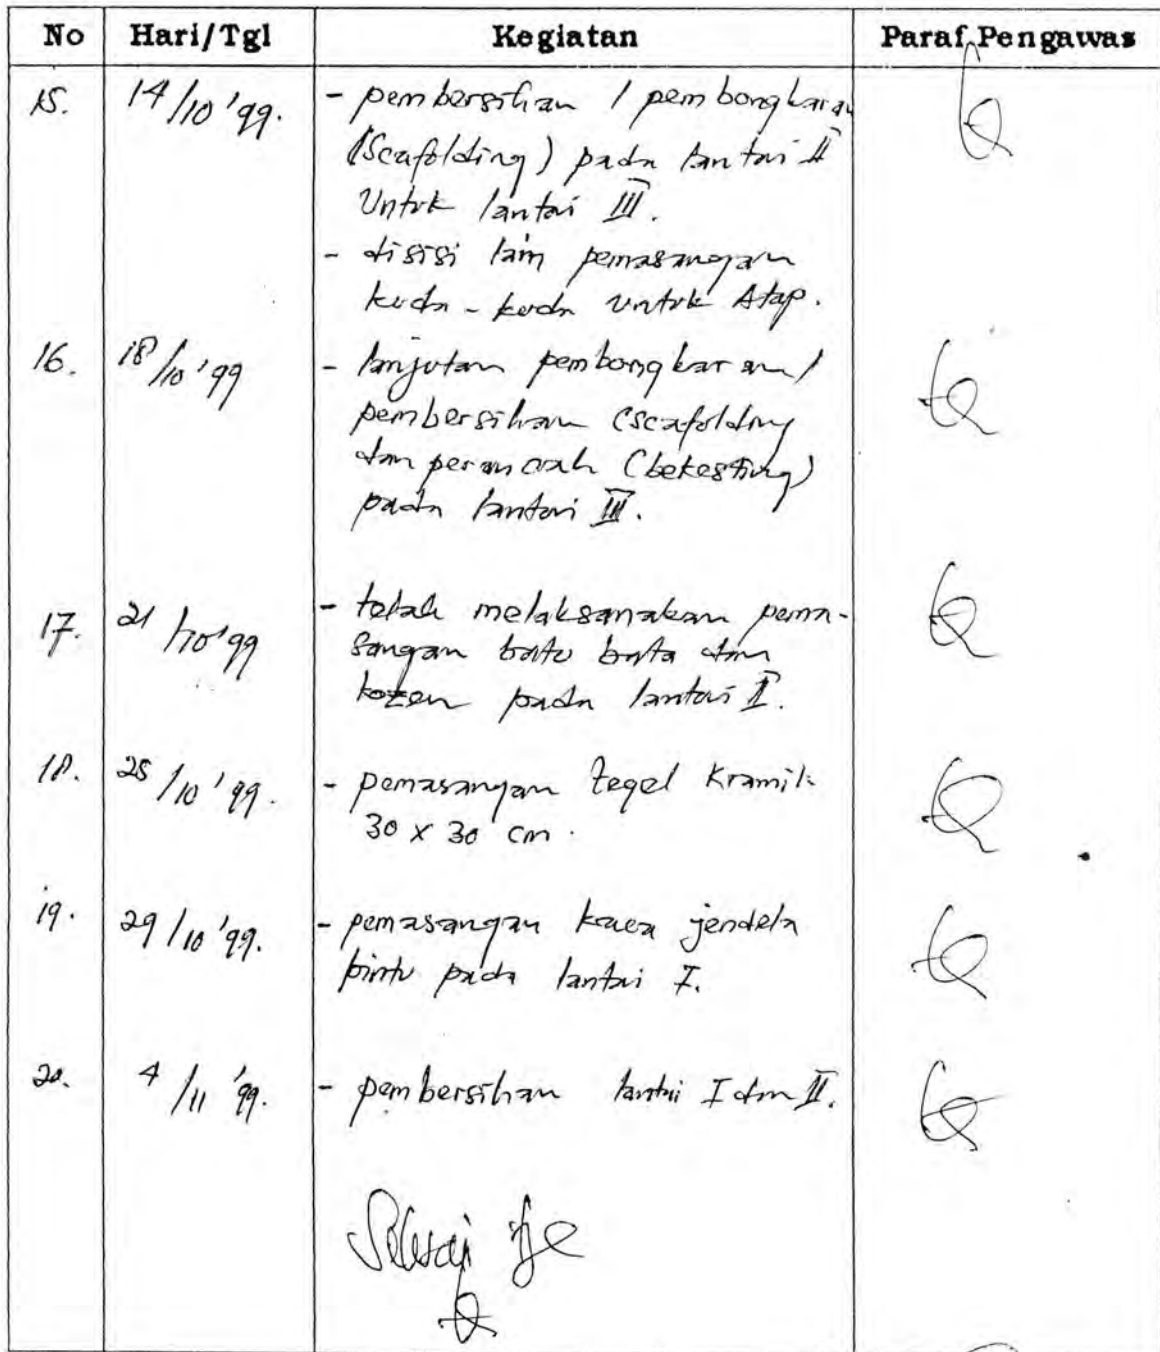 No Hari/Tgl Kegiatan Paraf Pengawas
15. 14/10 '99. - pembersihan / pembongkaran
(Scafolding) pada lantai II
Untuk lantai III.
- disisi lain pemasangan
kuda - kuda untuk Atap.
16. 18/10 '99 - lanjutan pembongkaran /
pembersihan (scafolding
dan perancah (bekesting)
pada lantai III.
17. 21/10 '99 - telah melaksanakan pema-
sangan batu bata dan
kozen pada lantai II.
18. 25/10 '99. - pemasangan tegel kramik
30 x 30 cm.
19. 29/10 '99. - pemasangan kaca jendela
pintu pada lantai I.
20. 4/11 '99. - pembersihan lantai I dan II.
Selesai